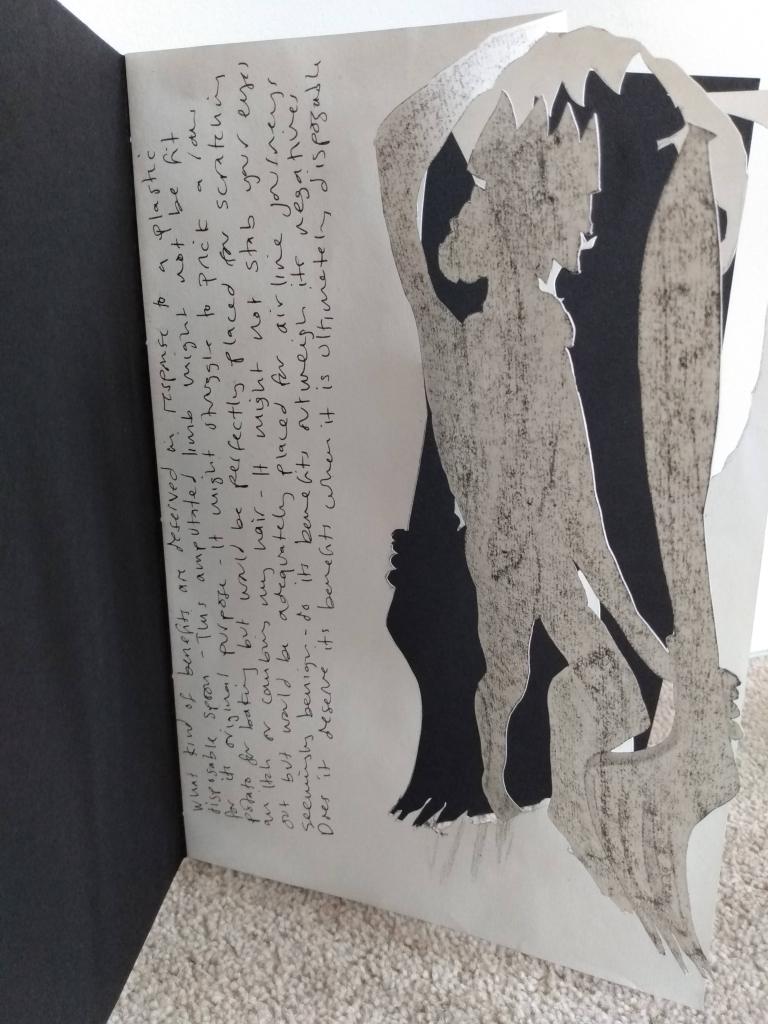 What kind of benefits are deserved in response to a plastic
disposable spoon - This amputated limb might not be fit
for its original purpose - It might struggle to prick a raw
potato for baking but would be perfectly placed for scratching
an itch or combing my hair - It might not stab your eyes
out but would be adequately placed for airline journeys
seemingly benign - do its benefits outweigh its negatives
Does it deserve its benefits when it is ultimately disposable